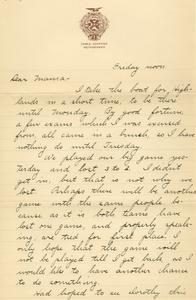 Friday noon
Dear Mama-
I take the boat for High-
lands in a short time, to be there
until Monday. By good fortune,
a few exams which I was excused
from, all came in a bunch, so I have
nothing to do until Tuesday.
We played our big game yes-
terday and lost 3 to 2. I didn't
get in, but that is not why we
lost. Perhaps there will be another
game with the same people be-
cause as it is both teams have
lost one game, and properly speak-
ing, are tied for first place. I
only hope that the game will
not be played till I get back, as I
would like to have another chance
to do something.
Had hoped to see Dorothy this